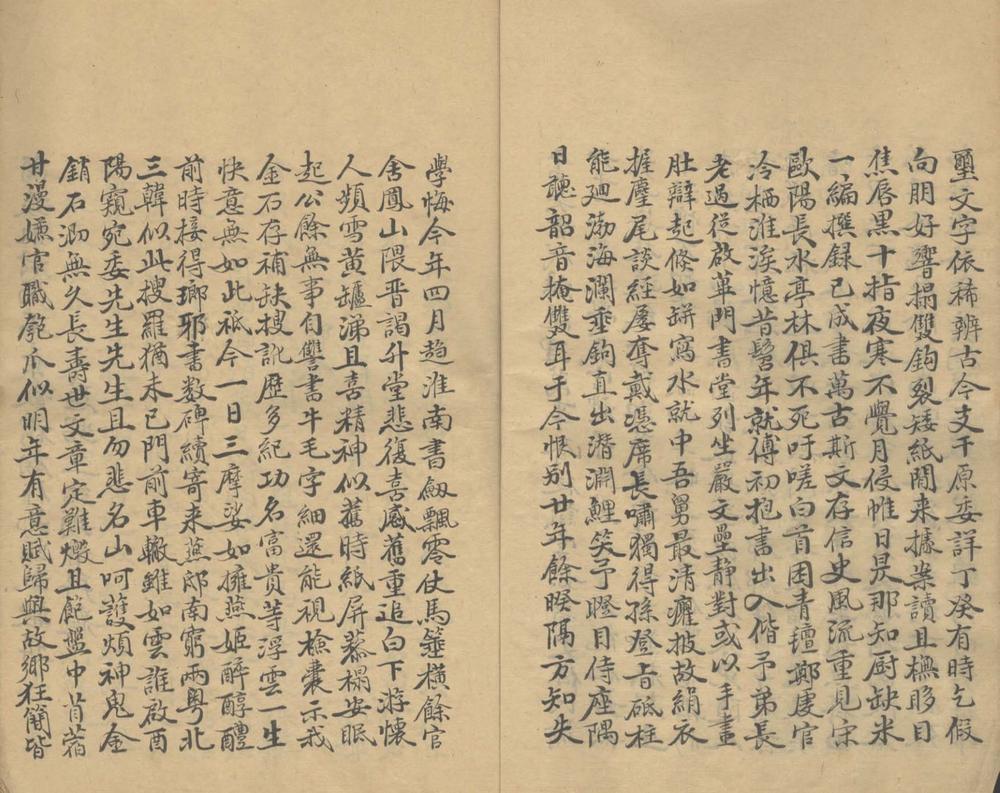 璽文字依稀辨古今支干原委詳丁癸有時乞假
向朋好響搨雙鉤裂矮紙閒来據案讀且橅眵目
焦唇黑十指夜寒不覺月侵帷日昃那知厨缺米
一編撰録已成書萬古斯文存信史風流重見宋
歐陽長水亭林俱不死吁嗟白首困青氊鄭虔官
冷栖淮涘憶昔髫年就傅初抱書出入偕予弟長
老過従啟蓽門書堂列坐嚴文壘静對或以手畫
肚辯起倏如缾寫水就中吾舅最清癯披故絹衣
握麈尾談經屢奪戴憑席長嘯獨得孫登旨砥柱
能廻渤海瀾垂鉤直出潛淵鯉笑予瞪目侍座隅
日聽韶音掩雙耳于今恨别廿年餘暌隔方知失
學悔今年四月趋淮南書劒飄零仗馬箠横餘官
舍鳳山隈晋謁升堂悲復喜感舊重追白下游懷
人頻雪黄壚涕且喜精神似舊時紙屏棐榻安眠
起公餘無事自讐書牛毛字細還能視檢囊示我
金石存補缺搜訛歷多紀功名富貴等浮雲一生
快意無如此祇今一日三摩娑如擁燕姬醉醇醴
前時接得瑯邪書数碑續寄来蕪郎南窮兩粤北
三韓似此搜羅猶未已門前車轍雖如雲誰啟酉
陽窺宛委先生先生且勿悲名山呵護煩神鬼金
銷石泐無久長壽世文章定難燬且飽盤中苜蓿
甘漫嫌官職匏爪似明年有意賦歸與故鄉狂簡皆